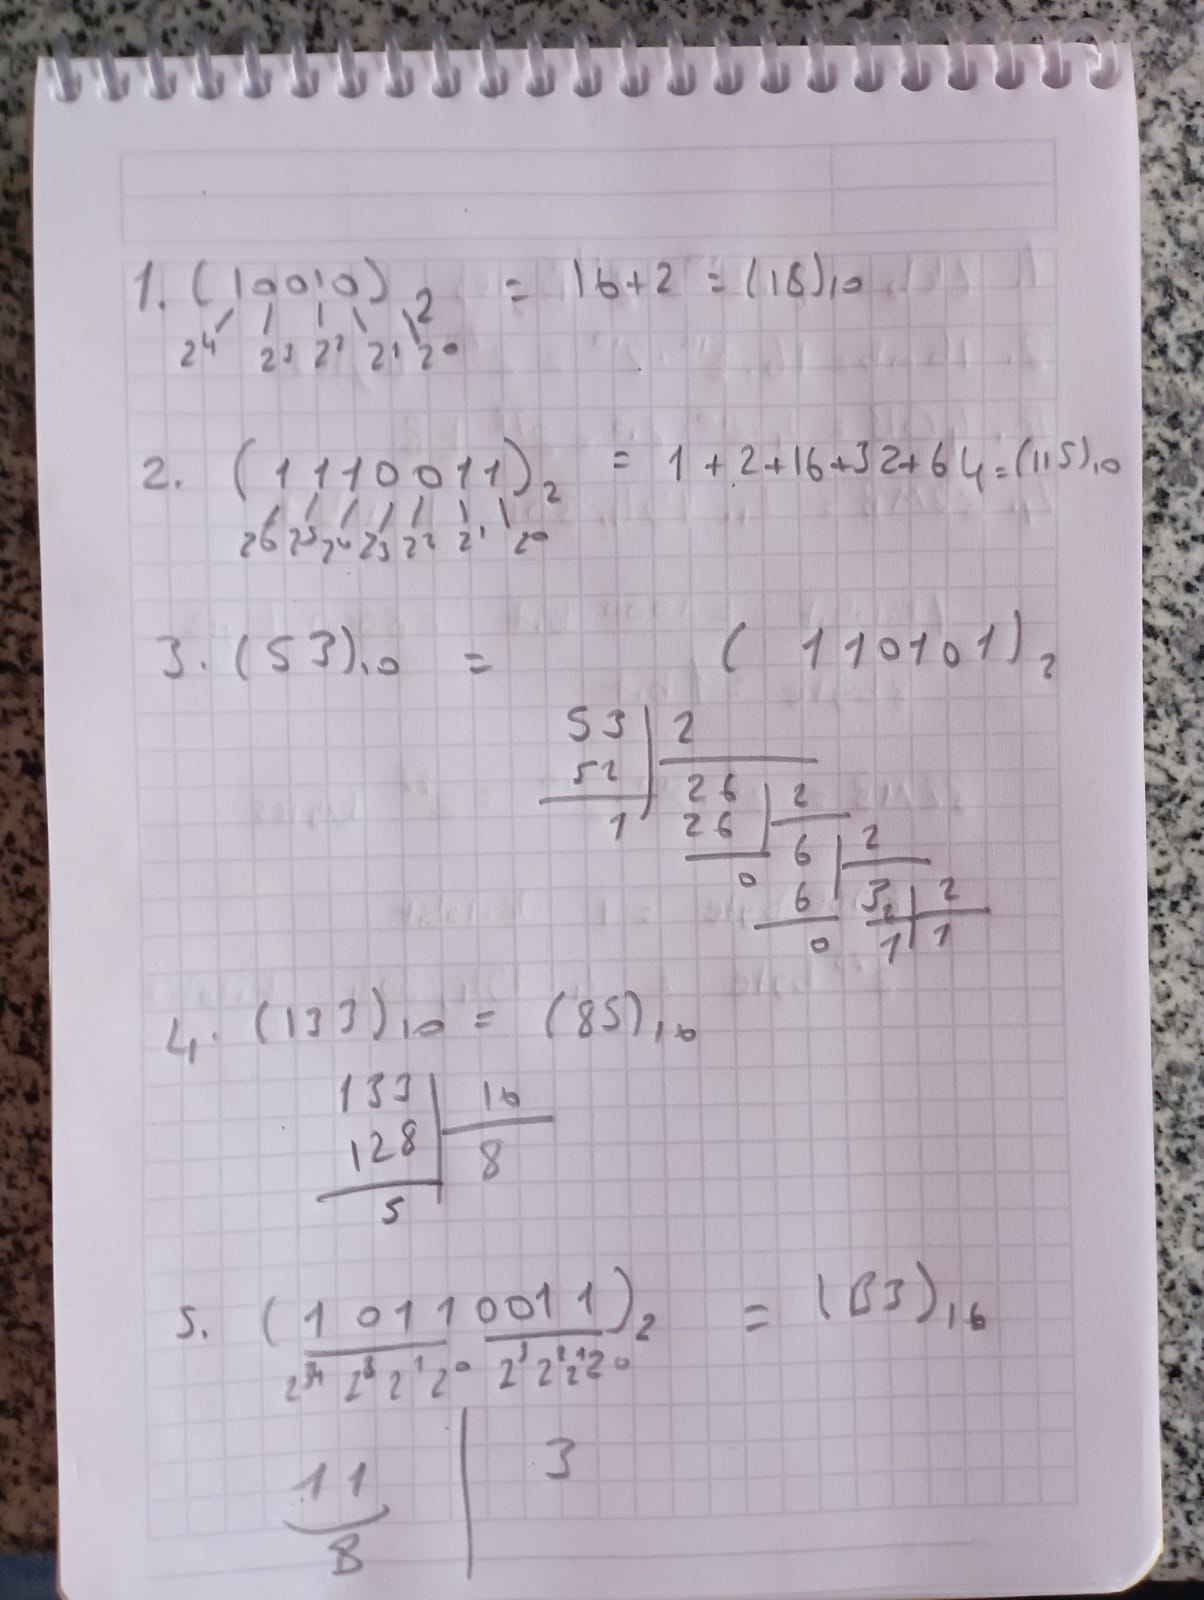 1. (10010)₂ = 16+2 = (18)₁₀
2⁴ 2³ 2² 2¹ 2⁰
2. (1110011)₂ = 1+2+16+32+64=(115)₁₀
2⁶ 2⁵ 2⁴ 2³ 2² 2¹ 2⁰
3. (53)₁₀ = (110101)₂
53 | 2
52 | 26 | 2
1 26 6 | 2
0 6 3 | 2
0 2 1
1
4. (133)₁₀ = (85)₁₀
133 | 16
128 | 8
5
5. (10110011)₂ = (B3)₁₆
2³ 2² 2¹ 2⁰ 2³ 2² 2¹ 2⁰
11 | 3
B